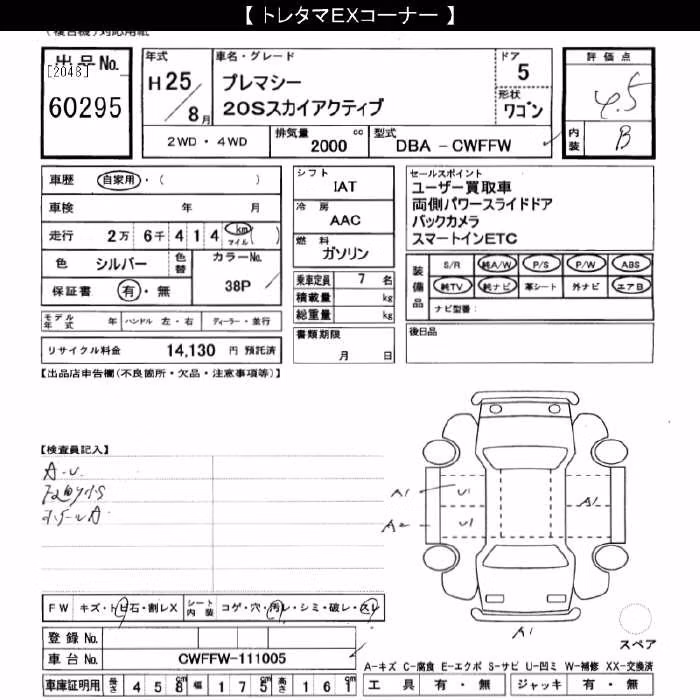 【 トレタマEXコーナー 】
出品No.
[2048]
60295
年式
H25/8月
車名・グレード
プレマシー
20Sスカイアクティブ
ドア
5
形状
ワゴン
2WD・4WD
排気量
2000 cc
型式
DBA - CWFFW
評価点
4.5
内装
B
車歴 自家用・( )
車検 年 月
走行 2万 6千 4 1 4 km マイル ( )
色 シルバー
色替
カラーNo.
38P
保証書 有・無
モデル年式 年 ハンドル 左・右 ディーラー・並行
リサイクル料金 14,130 円 預託済
シフト
IAT
冷房
AAC
燃料
ガソリン
乗車定員 7 名
積載量 kg
総重量 kg
書類期限
月 日
セールスポイント
ユーザー買取車
両側パワースライドドア
バックカメラ
スマートインETC
装備品
S/R 純A/W P/S P/W ABS
純TV 純ナビ 革シート 外ナビ エアB
ナビ型番:
後日品
【出品店申告欄(不良箇所・欠品・注意事項等)】
【検査員記入】
A・U
A1
U1
A2
U1
A1
A1
スペア
FW キズ・トビ石・割レX
シート内装 コゲ・穴・汚レ・シミ・破レ・スレ
登録No.
車台No. CWFFW-111005
車庫証明用 長さ 4 5 8 cm 幅 1 7 5 cm 高さ 1 6 1 cm
A-キズ C-腐食 E-エクボ S-サビ U-凹ミ W-補修 XX-交換済
工具 有・無 ジャッキ 有・無